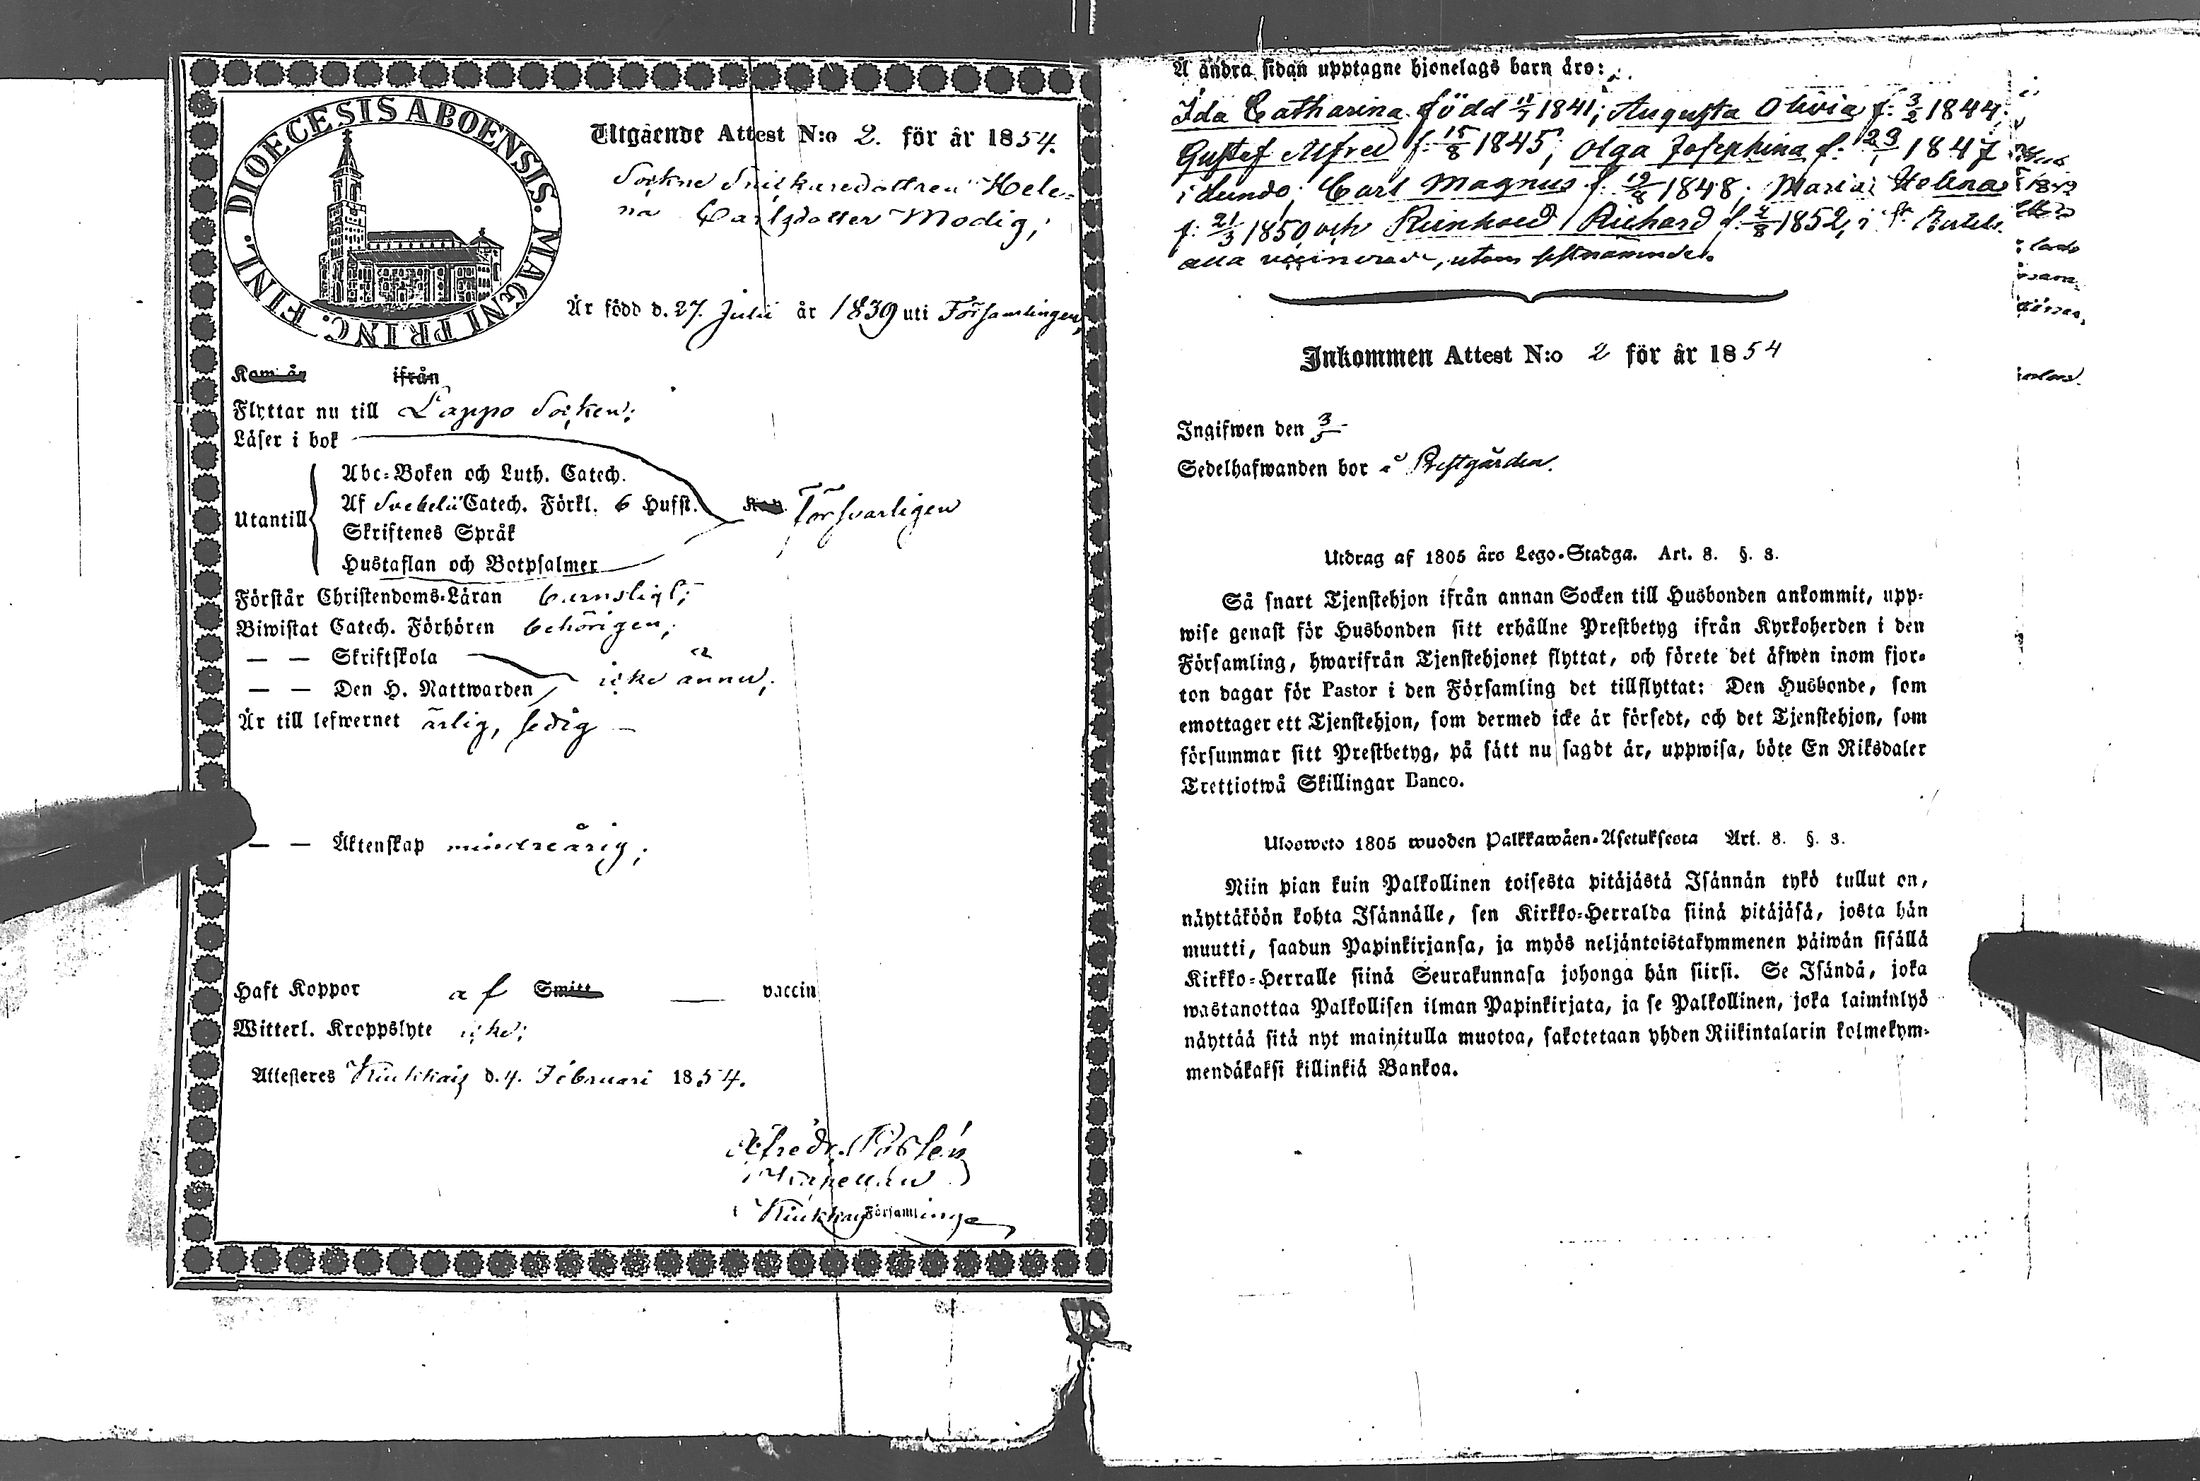 DIOECESIS ABOENSIS. MAGNI PRINC. FINL.
Utgående Attest N:o 2. för år 1854.
Sockne Snikaredottren Hele-
na Carlsdotter Modig;
Är född d. 27. Julii år 1839 uti Församlingen,
Kom år ifrån
Flyttar nu till Lappo Socken;
Läser i bok
Utantill
Abc-Boken och Luth. Catech.
Af Svebelii Catech. Förkl. 6 Hufst.
Skriftenes Språk
Hustaflan och Botpsalmer
försvarligen
Förstår Christendoms-Läran barnsligt;
Biwistat Catech. Förhören behörigen;
— — Skriftskola
— — Den H. Nattwarden
icke ännu;
Är till lefwernet ärlig, sedig —
— — Äktenskap minderårig;
Haft Koppor af Smitt — vaccin
Witterl. Kroppslyte icke;
Attesteres Kiukkais d. 4. Februari 1854.
Kapellan
i Kiukkais Församlinge
Å andra sidan upptagne hjonelags barn äro:
Ida Catharina född 11/7 1841; Augusta Olivia f. 3/2 1844;
Gustef Alfred f. 15/8 1845; Olga Josephina f. 29/1 1847
i Lundo; Carl Magnus f. 19/8 1848; Maria Helena
f. 21/3 1850 och Reinhold Richard f. 4/8 1852, i
alla vaccinerade, utom sistnämnde.
Inkommen Attest N:o 2 för år 1854
Ingifwen den 3/5
Sedelhafwanden bor å Prestgården.
Utdrag af 1805 års Lego-Stadga. Art. 8. §. 3.
Så snart Tjenstehjon ifrån annan Socken till Husbonden ankommit, upp-
wise genast för Husbonden sitt erhållne Prestbetyg ifrån Kyrkoherden i den
Församling, hwarifrån Tjenstehjonet flyttat, och förete det äfwen inom fjor-
ton dagar för Pastor i den Församling det tillflyttat: Den Husbonde, som
emottager ett Tjenstehjon, som dermed icke är försedt, och det Tjenstehjon, som
försummar sitt Prestbetyg, på sätt nu sagdt är, uppwisa, böte En Riksdaler
Trettiotwå Skillingar Banco.
Ulosweto 1805 wuoden Palkkawäen-Asetuksesta Art. 8. §. 3.
Niin pian kuin Palkollinen toisesta pitäjästä Isännän tykö tullut on,
näyttäköön kohta Isännälle, sen Kirkko-Herralda siinä pitäjäsä, josta hän
muutti, saadun Papinkirjansa, ja myös neljäntoistakymmenen päiwän sisällä
Kirkko-Herralle siinä Seurakunnasa johonga hän siirsi. Se Isändä, joka
wastanottaa Palkollisen ilman Papinkirjata, ja se Palkollinen, joka laiminlyö
näyttää sitä nyt mainitulla muotoa, sakotetaan yhden Riikintalarin kolmekym-
mendäkaksi killinkiä Bankoa.